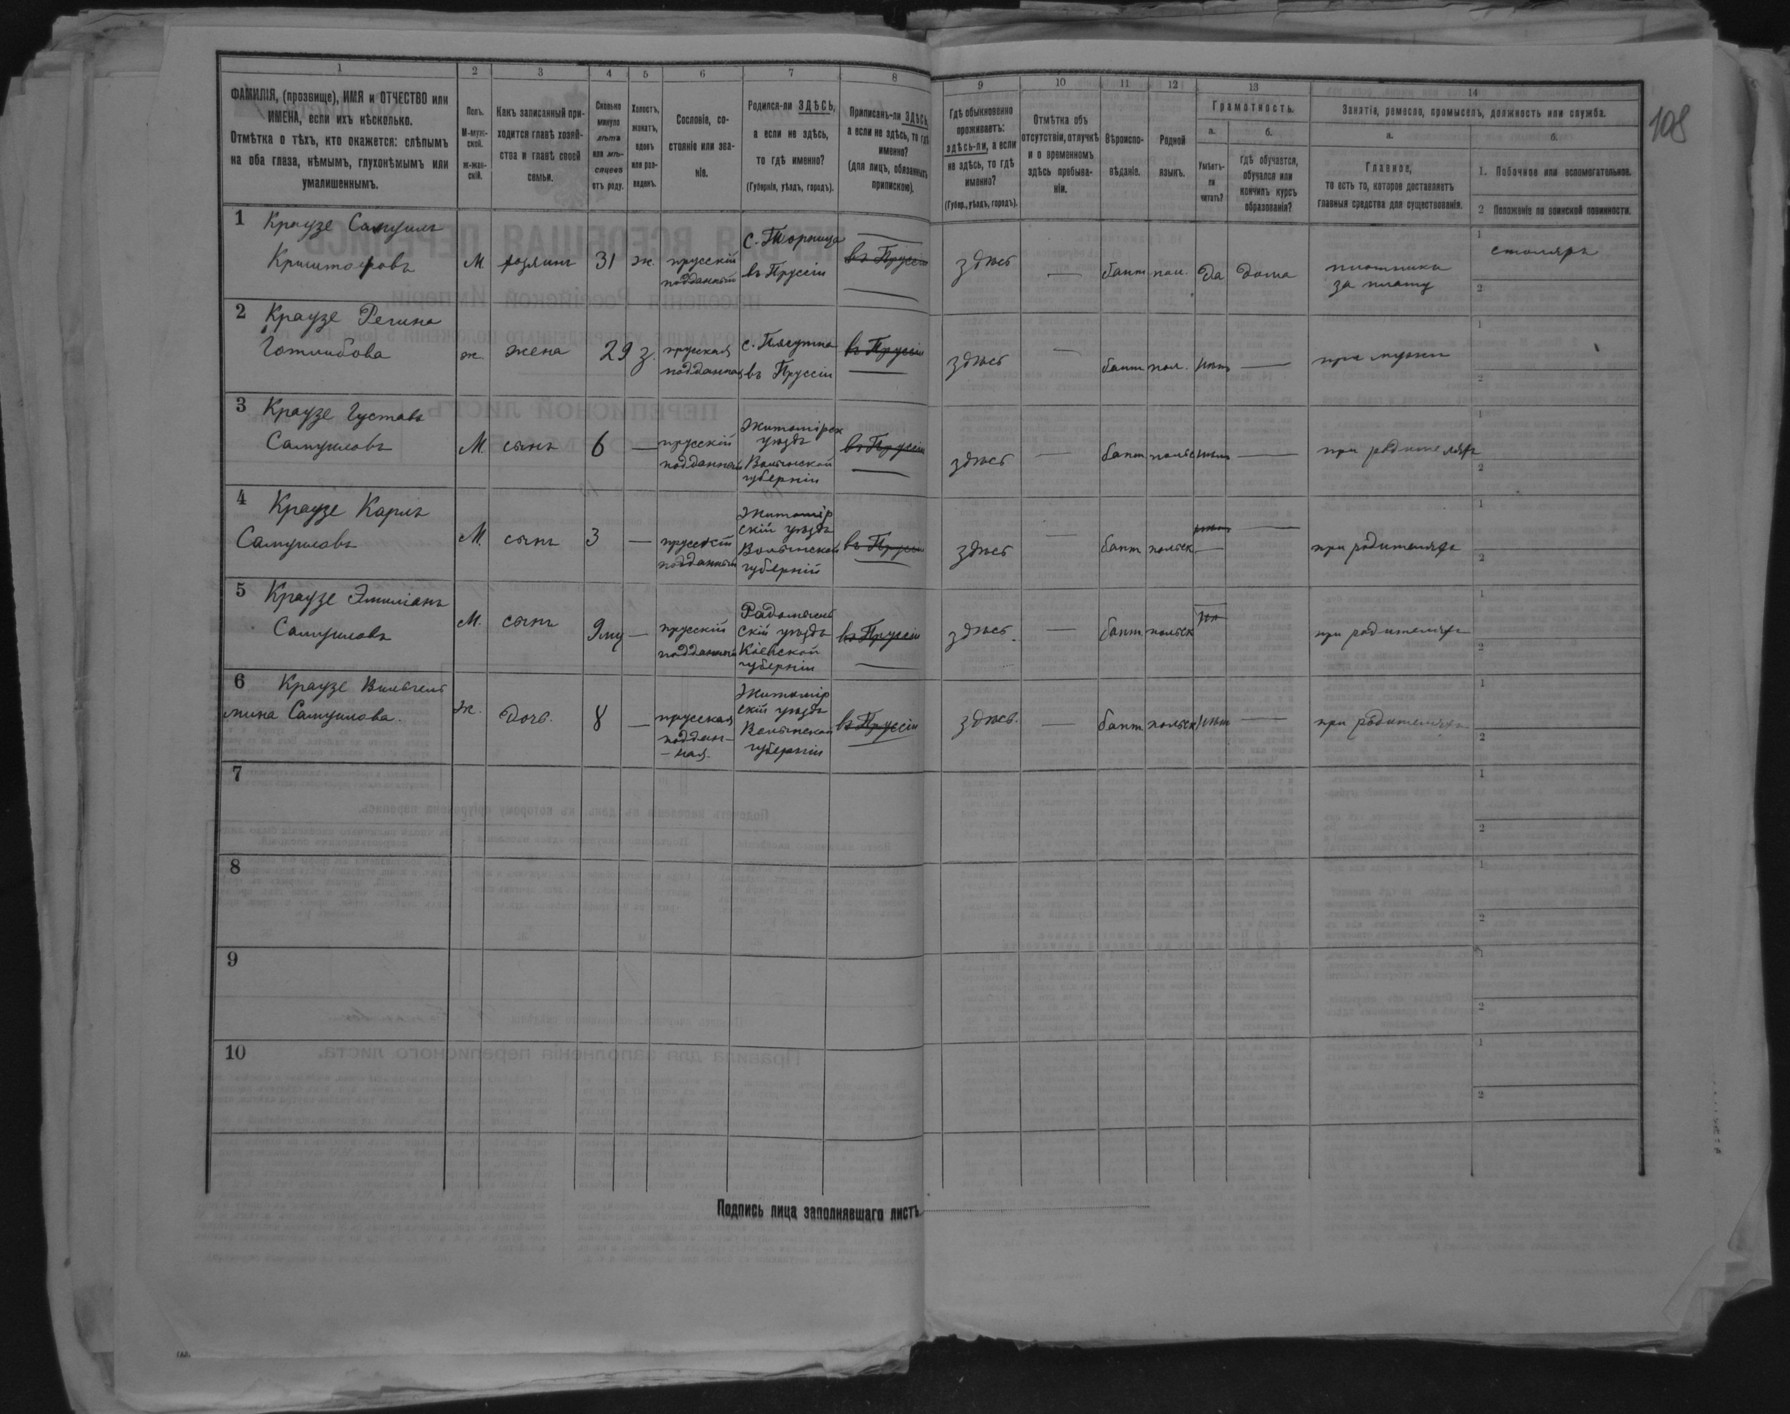 108
1 2 3 4 5 6 7 8 9 10 11 12 13 14
ФАМИЛІЯ, (прозвище), ИМЯ и ОТЧЕСТВО или
ИМЕНА, если ихъ нѣсколько.
Отмѣтка о тѣхъ, кто окажется: слѣпымъ
на оба глаза, нѣмымъ, глухонѣмымъ или
умалишеннымъ.
Полъ.
М-муж-
ской.
ж-жен-
скій.
Какъ записанный при-
ходится главѣ хозяй-
ства и главѣ своей
семьи.
Сколько
минуло
лѣтъ
или мѣ-
сяцевъ
отъ роду.
Холостъ,
женатъ,
вдовъ
или раз-
веденъ.
Сословіе, со-
стояніе или зва-
ніе.
Родился-ли ЗДѢСЬ,
а если не здѣсь,
то гдѣ именно?
(Губернія, уѣздъ, городъ).
Приписанъ-ли ЗДѢСЬ,
а если не здѣсь, то гдѣ
именно?
(для лицъ, обязанныхъ
припискою).
Гдѣ обыкновенно
проживаетъ:
здѣсь-ли, а если
не здѣсь, то гдѣ
именно?
(Губер., уѣздъ, городъ).
Отмѣтка объ
отсутствіи, отлучкѣ
и о временномъ
здѣсь пребыва-
ніи.
Вѣроиспо-
вѣданіе.
Родной
языкъ.
Грамотность.
а.
Умѣетъ-
ли
читать?
б.
гдѣ обучается,
обучался или
кончилъ курсъ
образованія?
Занятіе, ремесло, промыселъ, должность или служба.
а.
Главное,
то есть то, которое доставляетъ
главныя средства для существованія.
б.
1. Побочное или вспомогательное.
2 Положеніе по воинской повинности.
1 Краузе Самуилъ
Криштофовъ
М. хозяинъ 31 ж. прусскій
подданный
въ Пруссіи
въ Пруссіи
здѣсь — бапт. пол. да дома плотникъ
за плату
1 столяръ
2
2 Краузе Регина
Готлибова
ж. жена 29 з. прусская
подданная
въ Пруссіи
въ Пруссіи
здѣсь — бапт. пол. нѣтъ — при мужѣ
1
2
3 Краузе Густавъ
Самуиловъ
М сынъ 6 — прусскій
подданный
Житомірск
уѣздъ
Волынской
губерніи
въ Пруссіи
здѣсь — бапт польс нѣтъ — при родителяхъ
1
2
4 Краузе Карлъ
Самуиловъ
М. сынъ 3 — прусскій
подданный
Житомір
скій уѣздъ
Волынской
губерніи
въ Пруссіи
здѣсь — бапт польск нѣтъ — при родителяхъ
1
2
5 Краузе Эмиліанъ
Самуиловъ
М. сынъ — прусскій
подданный
Радомысль
скій уѣздъ
Кіевской
губерніи
въ Пруссіи
здѣсь. — бапт польск при родителяхъ
1
2
6 Краузе Вильгель
мина Самуилова.
ж. дочь. 8 — прусская
поддан-
-ная.
Житомір
скій уѣздъ
Волынской
губерніи
въ Пруссіи
здѣсь. — бапт польск нѣтъ — при родителяхъ
1
2
7
1
2
8
1
2
9
1
2
10
1
2
Подпись лица заполнявшаго листъ